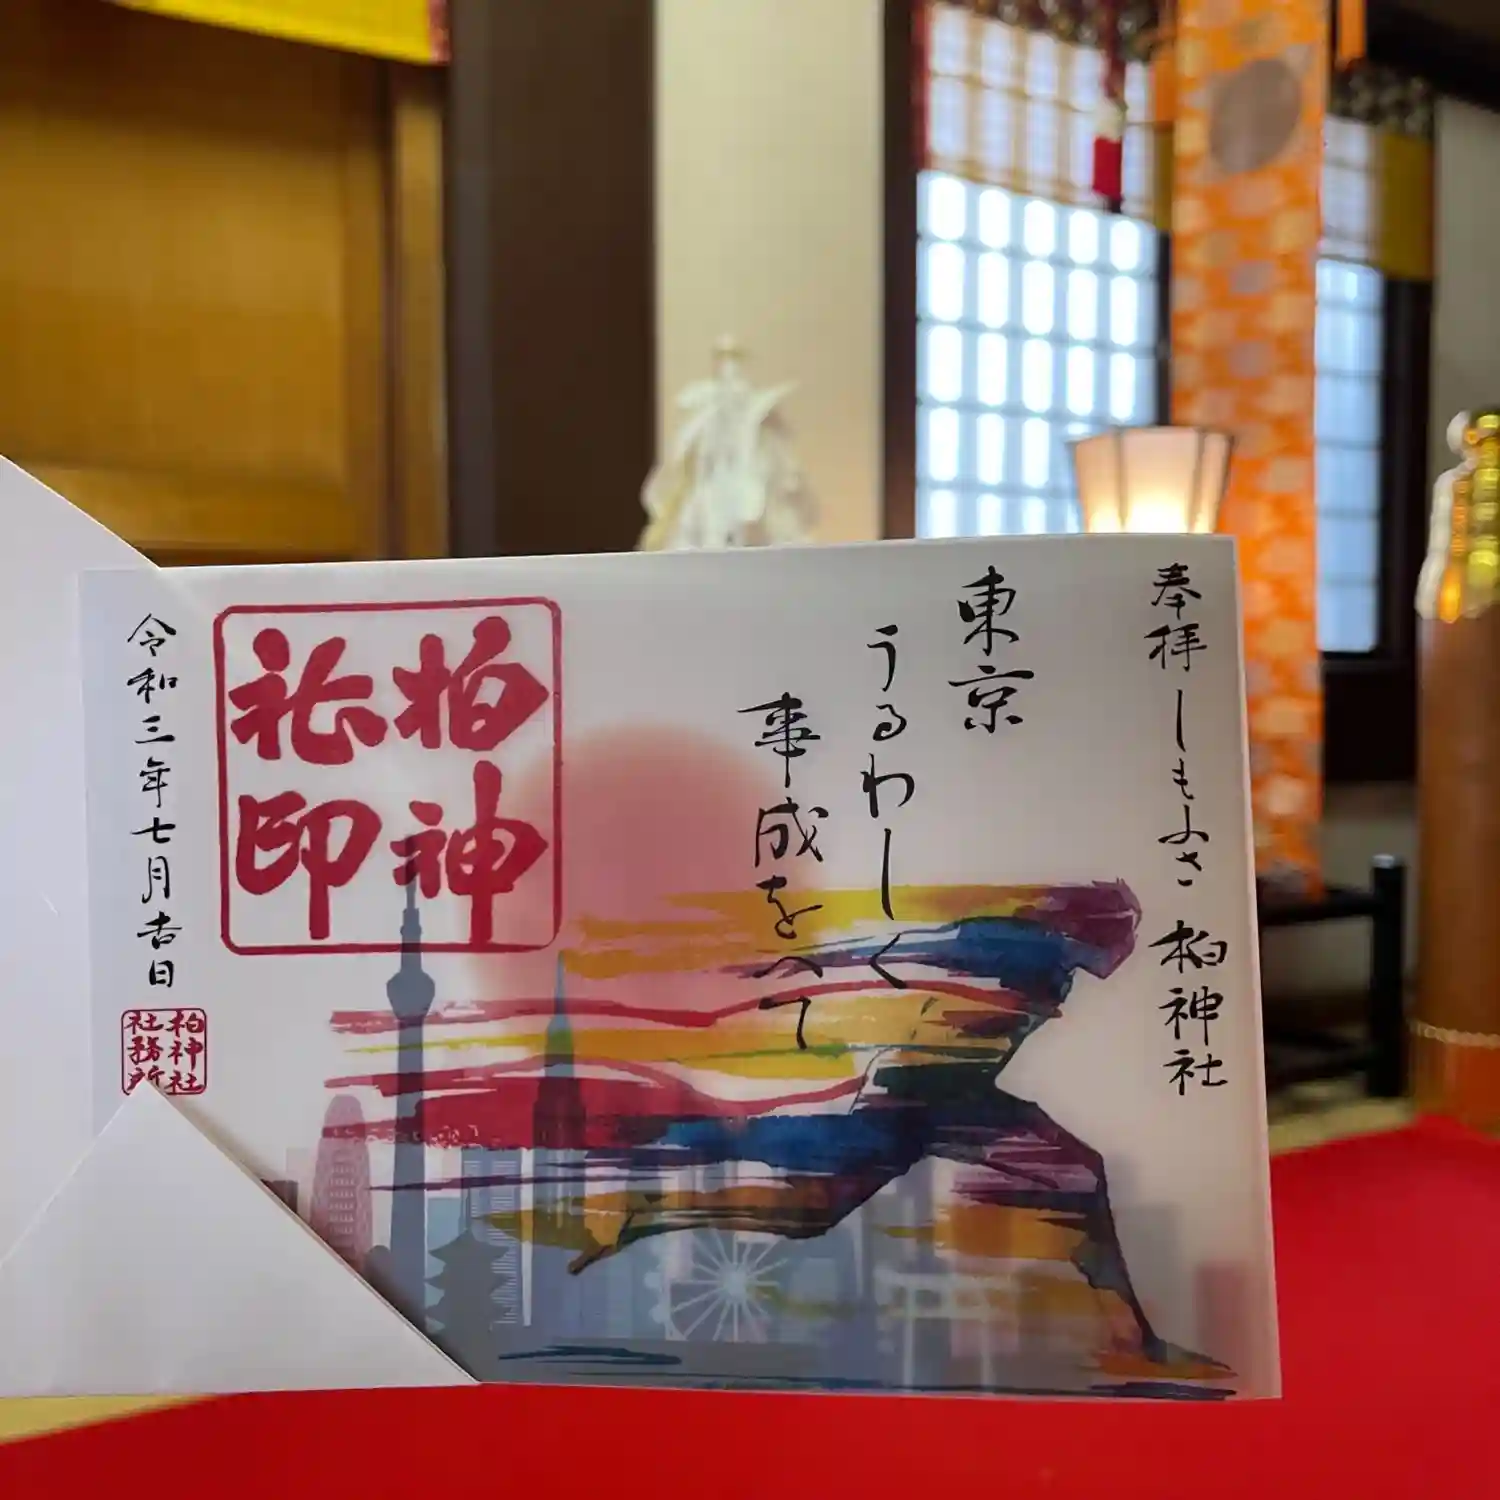 奉拝 しもふさ 柏神社
東京
うるわしく
事成をへて
柏神
社印
令和三年七月吉日
柏神社
社務所